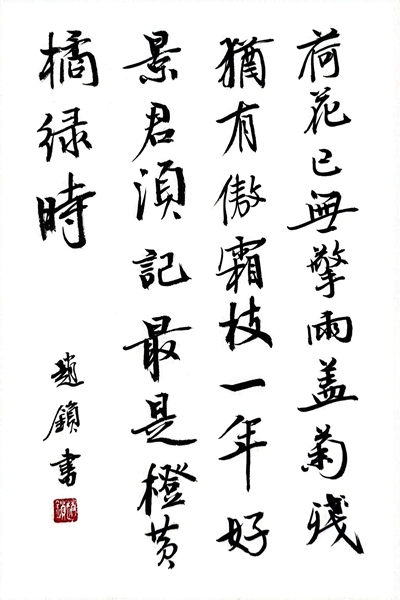 荷花已無擎雨盖菊残
猶有傲霜枝一年好
景君須記最是橙黄
橘绿時
趙鎖書